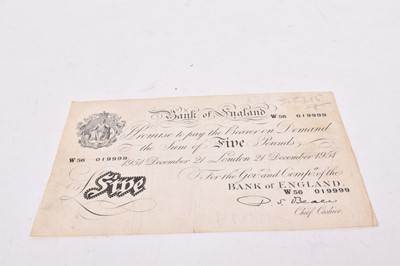 Bank of England
W56 019999
Promise to pay the Bearer on Demand
the Sum of Five Pounds
W56 019999
1951 December 21 London 21 December 1951
For the Govr and Compa of the
BANK OF ENGLAND.
W56 019999
£ Five
P. S. Beale
Chief Cashier.